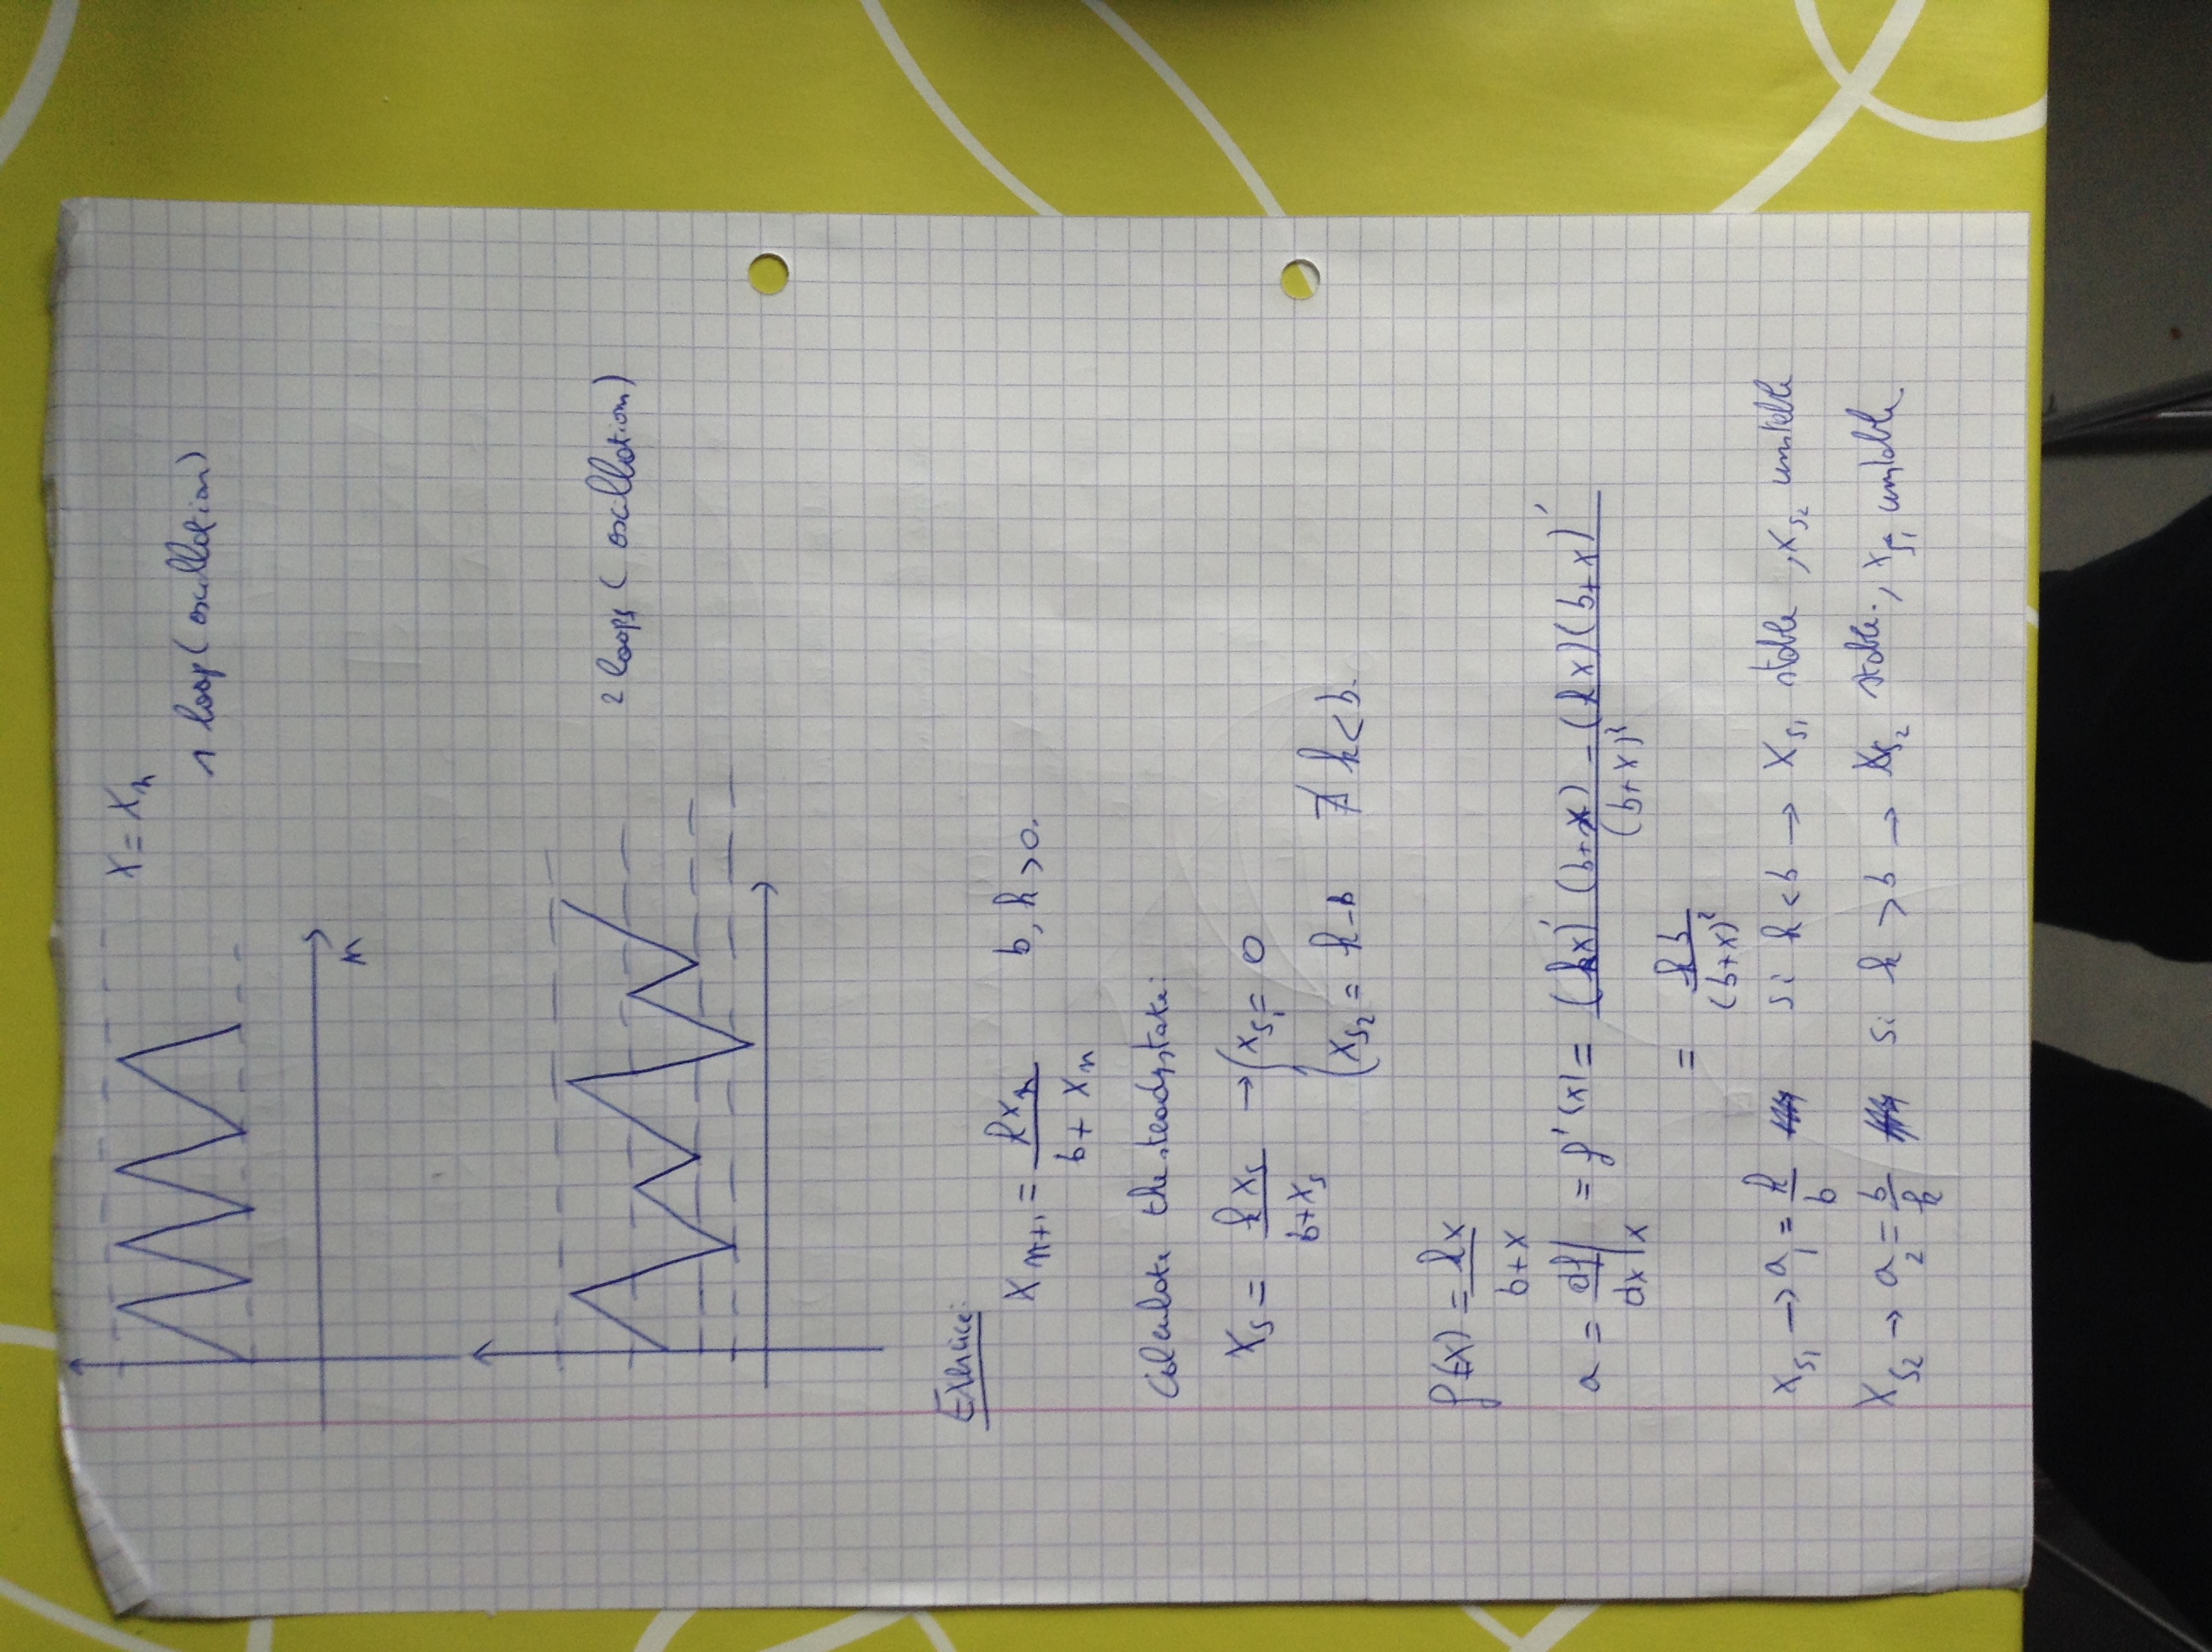 X = Xn
1 loop (oscillation)
n
2 loops (oscillation)
Exercice:
X n+1 = kXn / (b + Xn)    b, k > 0.
Calculate the steady state:
Xs = kXs / (b+Xs) → ( Xs1 = 0
( Xs2 = k-b    ∄ k < b.
f(x) = kx / (b+x)
a = df/dx | x = f'(x) = ((kx)' (b+x) - (kx)(b+x)') / (b+x)²
= kb / (b+x)²
Xs1 → a1 = k/b    si k < b → Xs1 stable, Xs2 unstable
Xs2 → a2 = b/k    si k > b → Xs2 stable., Xs1 unstable.